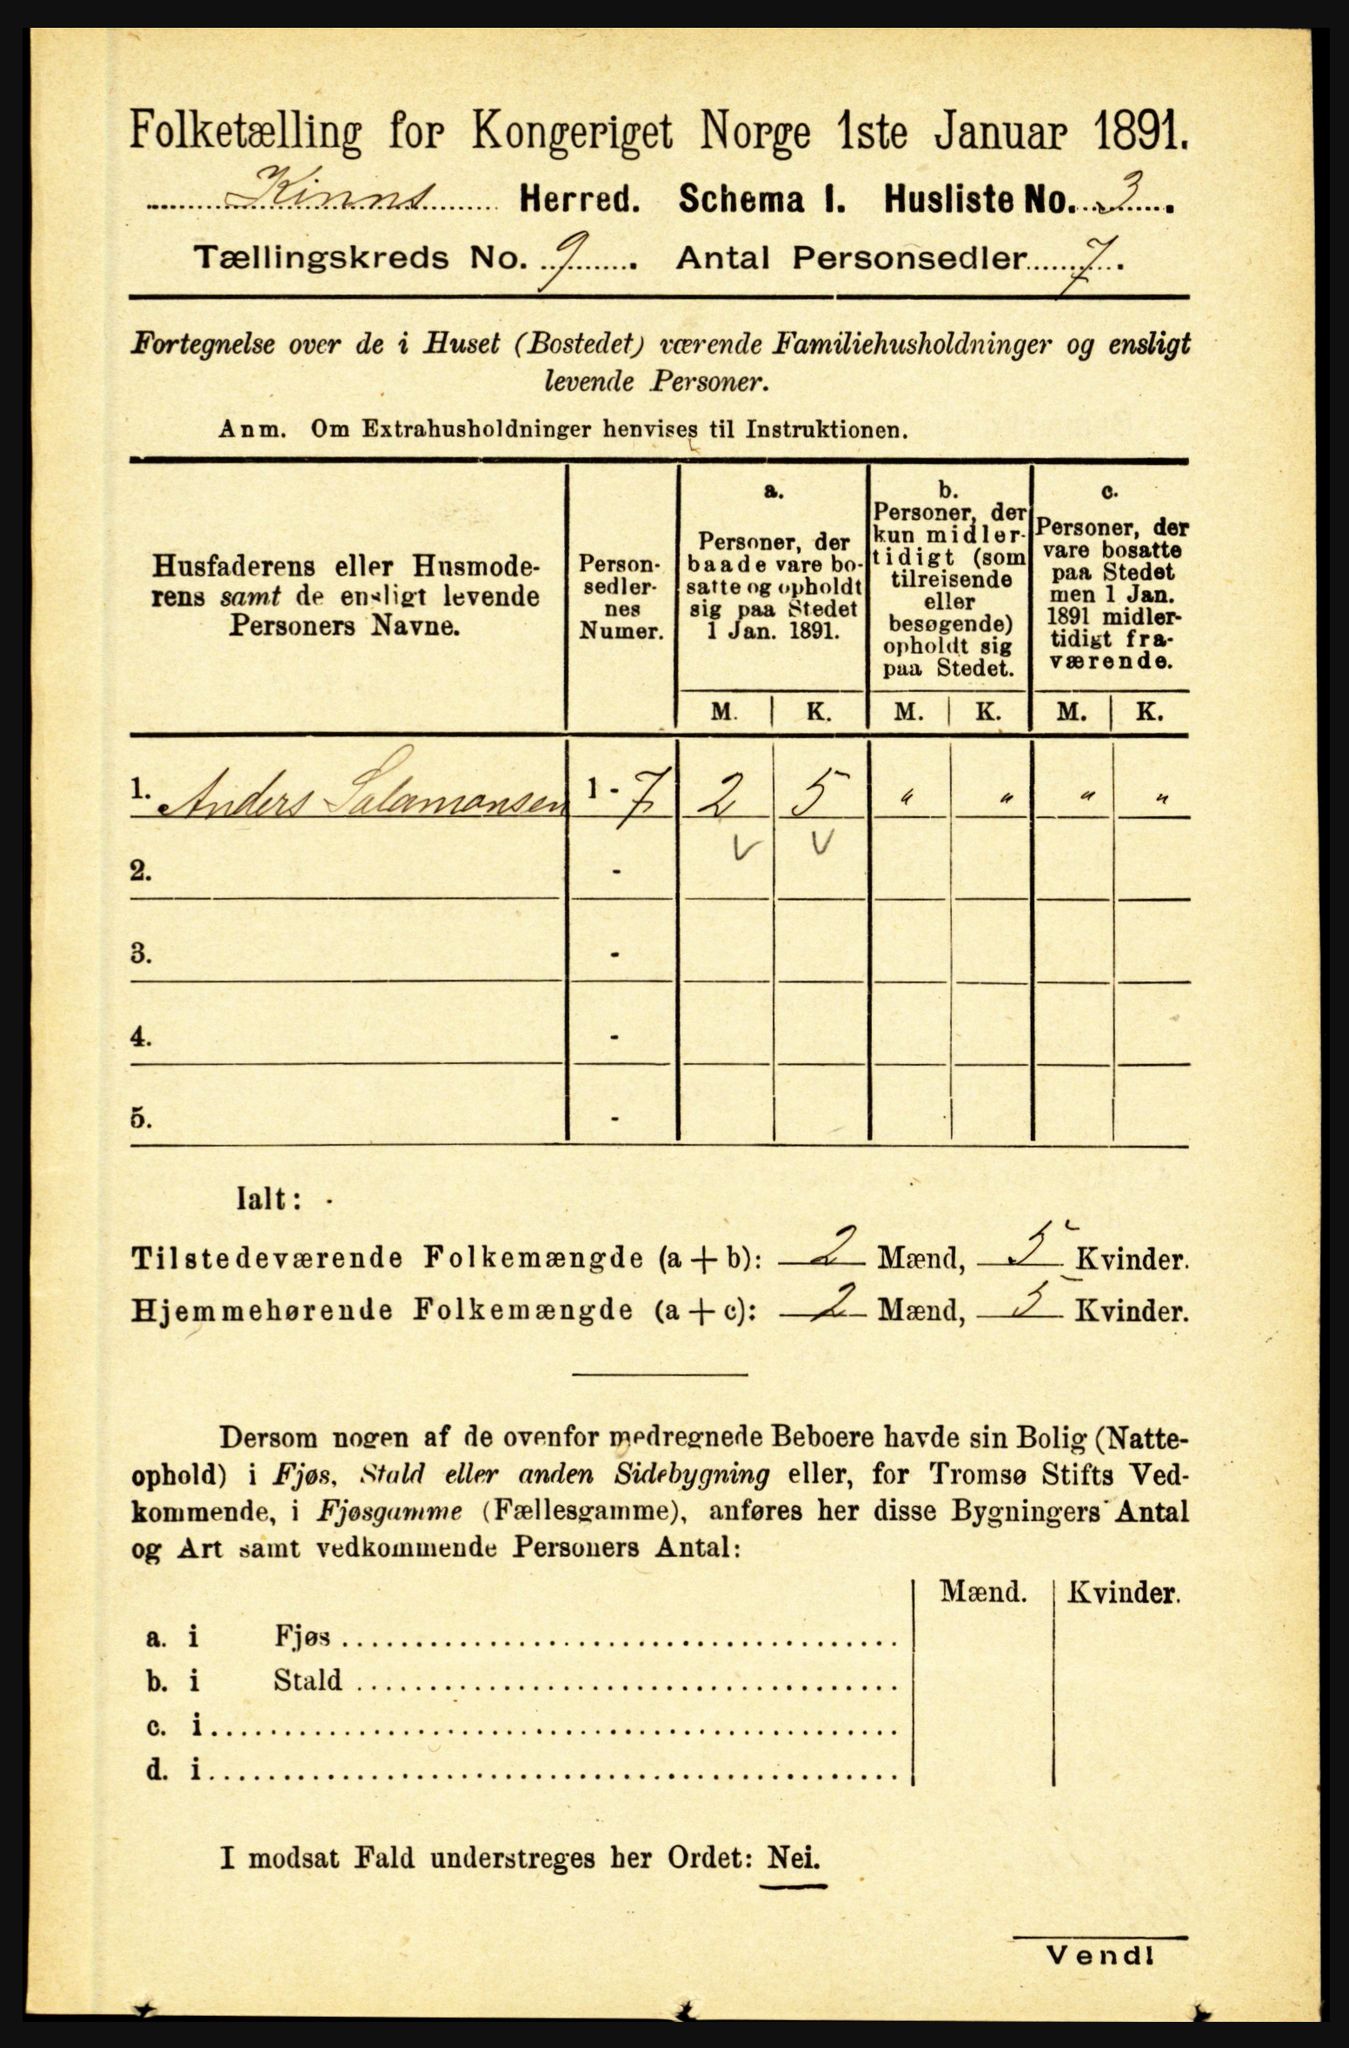 Folketælling for Kongeriget Norge 1ste Januar 1891.
Kinns Herred. Schema I. Husliste No. 3.
Tællingskreds No. 9. Antal Personsedler 7.
Fortegnelse over de i Huset (Bostedet) værende Familiehusholdninger og ensligt
levende Personer.
Anm. Om Extrahusholdninger henvises til Instruktionen.
Husfaderens eller Husmode-
rens samt de ensligt levende
Personers Navne.
Person-
sedler-
nes
Numer.
a.
Personer, der
baade vare bo-
satte og opholdt
sig paa Stedet
1 Jan. 1891.
b.
Personer, der
kun midler-
tidigt (som
tilreisende
eller
besøgende)
opholdt sig
paa Stedet.
c.
Personer, der
vare bosatte
paa Stedet
men 1 Jan.
1891 midler-
tidigt fra-
værende.
M. K. M. K. M. K.
1. Anders Salamonsen 1 - 7 2 5 " " " "
2. -
3. -
4. -
5. -
Ialt:
Tilstedeværende Folkemængde (a + b): 2 Mænd, 5 Kvinder.
Hjemmehørende Folkemængde (a + c): 2 Mænd, 5 Kvinder.
Dersom nogen af de ovenfor medregnede Beboere havde sin Bolig (Natte-
ophold) i Fjøs, Stald eller anden Sidebygning eller, for Tromsø Stifts Ved-
kommende, i Fjøsgamme (Fællesgamme), anføres her disse Bygningers Antal
og Art samt vedkommende Personers Antal:
Mænd. Kvinder.
a. i Fjøs
b. i Stald
c. i
d. i
I modsat Fald understreges her Ordet: Nei.
Vend!